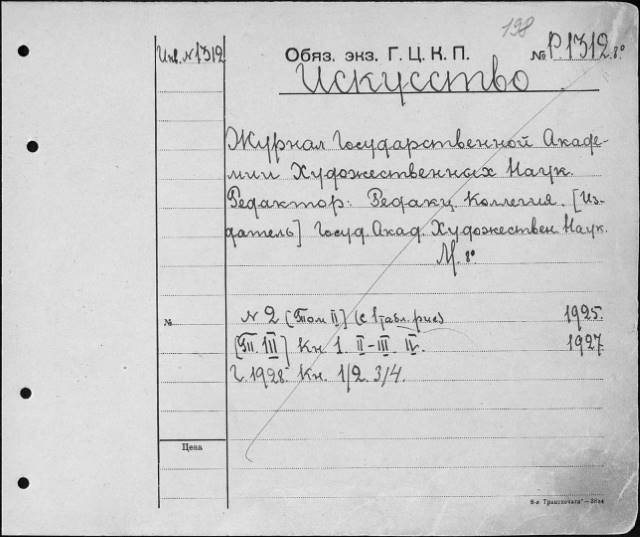 198
Инв. № 1312
Обяз. экз. Г. Ц. К. П.
№ Р.1312.8°
Искусство
Журнал Государственной Акаде-
мии Художественных Наук.
Редактор: Редакц. Коллегия. [Из-
датель] Госуд. Акад. Художествен. Наук.
М. 8°
№
№ 2 [Том II] (с 1 табл. рис.) 1925.
[Т. III] Кн. 1. II–III. IV. 1927.
Г. 1928. Кн. 1/2. 3/4.
Цена